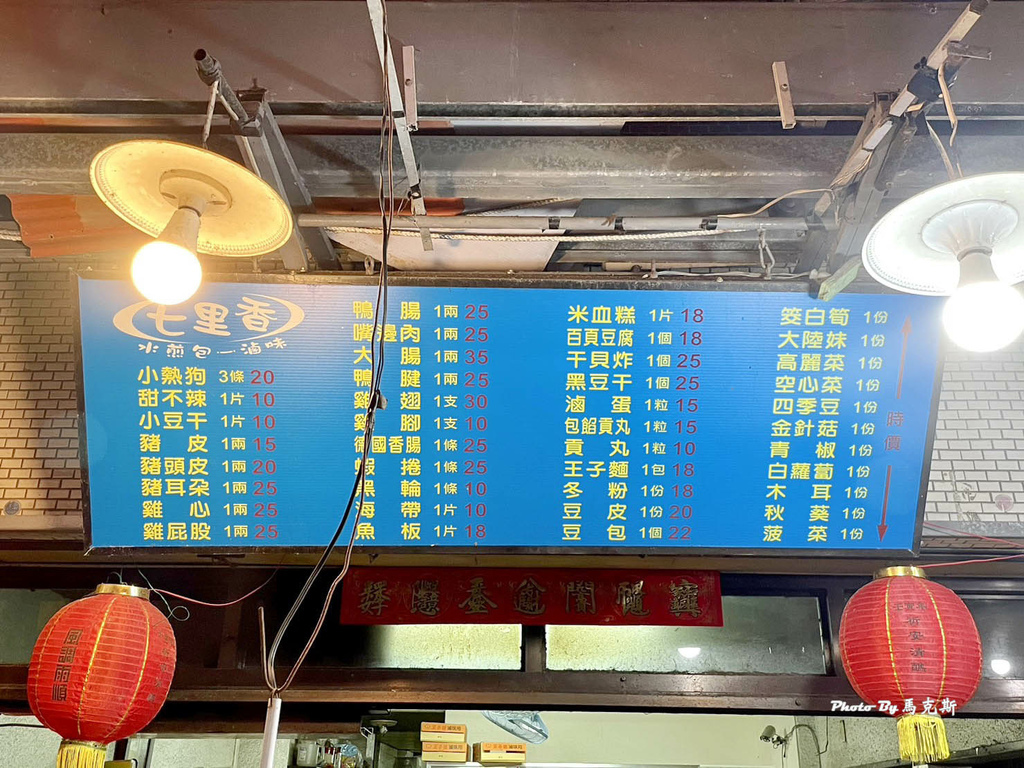 七里香
水煎包－滷味
小熱狗 3條 20
甜不辣 1片 10
小豆干 1片 10
豬皮 1兩 15
豬頭皮 1兩 20
豬耳朵 1兩 25
雞心 1兩 25
雞屁股 1兩 25
鴨腸 1兩 25
嘴邊肉 1兩 25
大腸 1兩 35
鴨腱 1兩 25
雞翅 1支 30
雞腳 1支 10
德國香腸 1條 25
蝦捲 1條 25
黑輪 1條 10
海帶 1片 10
魚板 1片 18
米血糕 1片 18
百頁豆腐 1個 18
干貝炸 1個 25
黑豆干 1個 25
滷蛋 1粒 15
包餡貢丸 1粒 15
貢丸 1粒 10
王子麵 1包 18
冬粉 1份 18
豆皮 1份 20
豆包 1個 22
筊白筍 1份
大陸妹 1份
高麗菜 1份
空心菜 1份
四季豆 1份
金針菇 1份
青椒 1份
白蘿蔔 1份
木耳 1份
秋葵 1份
菠菜 1份
時價
風調雨順
Photo By 馬克斯